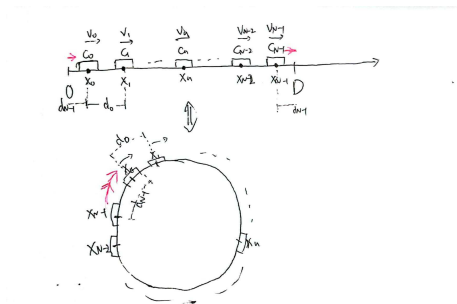 V₀ V₁ Vₙ V_N-2 V_N-1
C₀ C₁ Cₙ C_N-2 C_N-1
X₀ X₁ Xₙ X_N-2 X_N-1
0 D
d_N-1 d₀ d_N-1
d₀
X₀ X₁
d_N-1
X_N-1
X_N-2 Xₙ